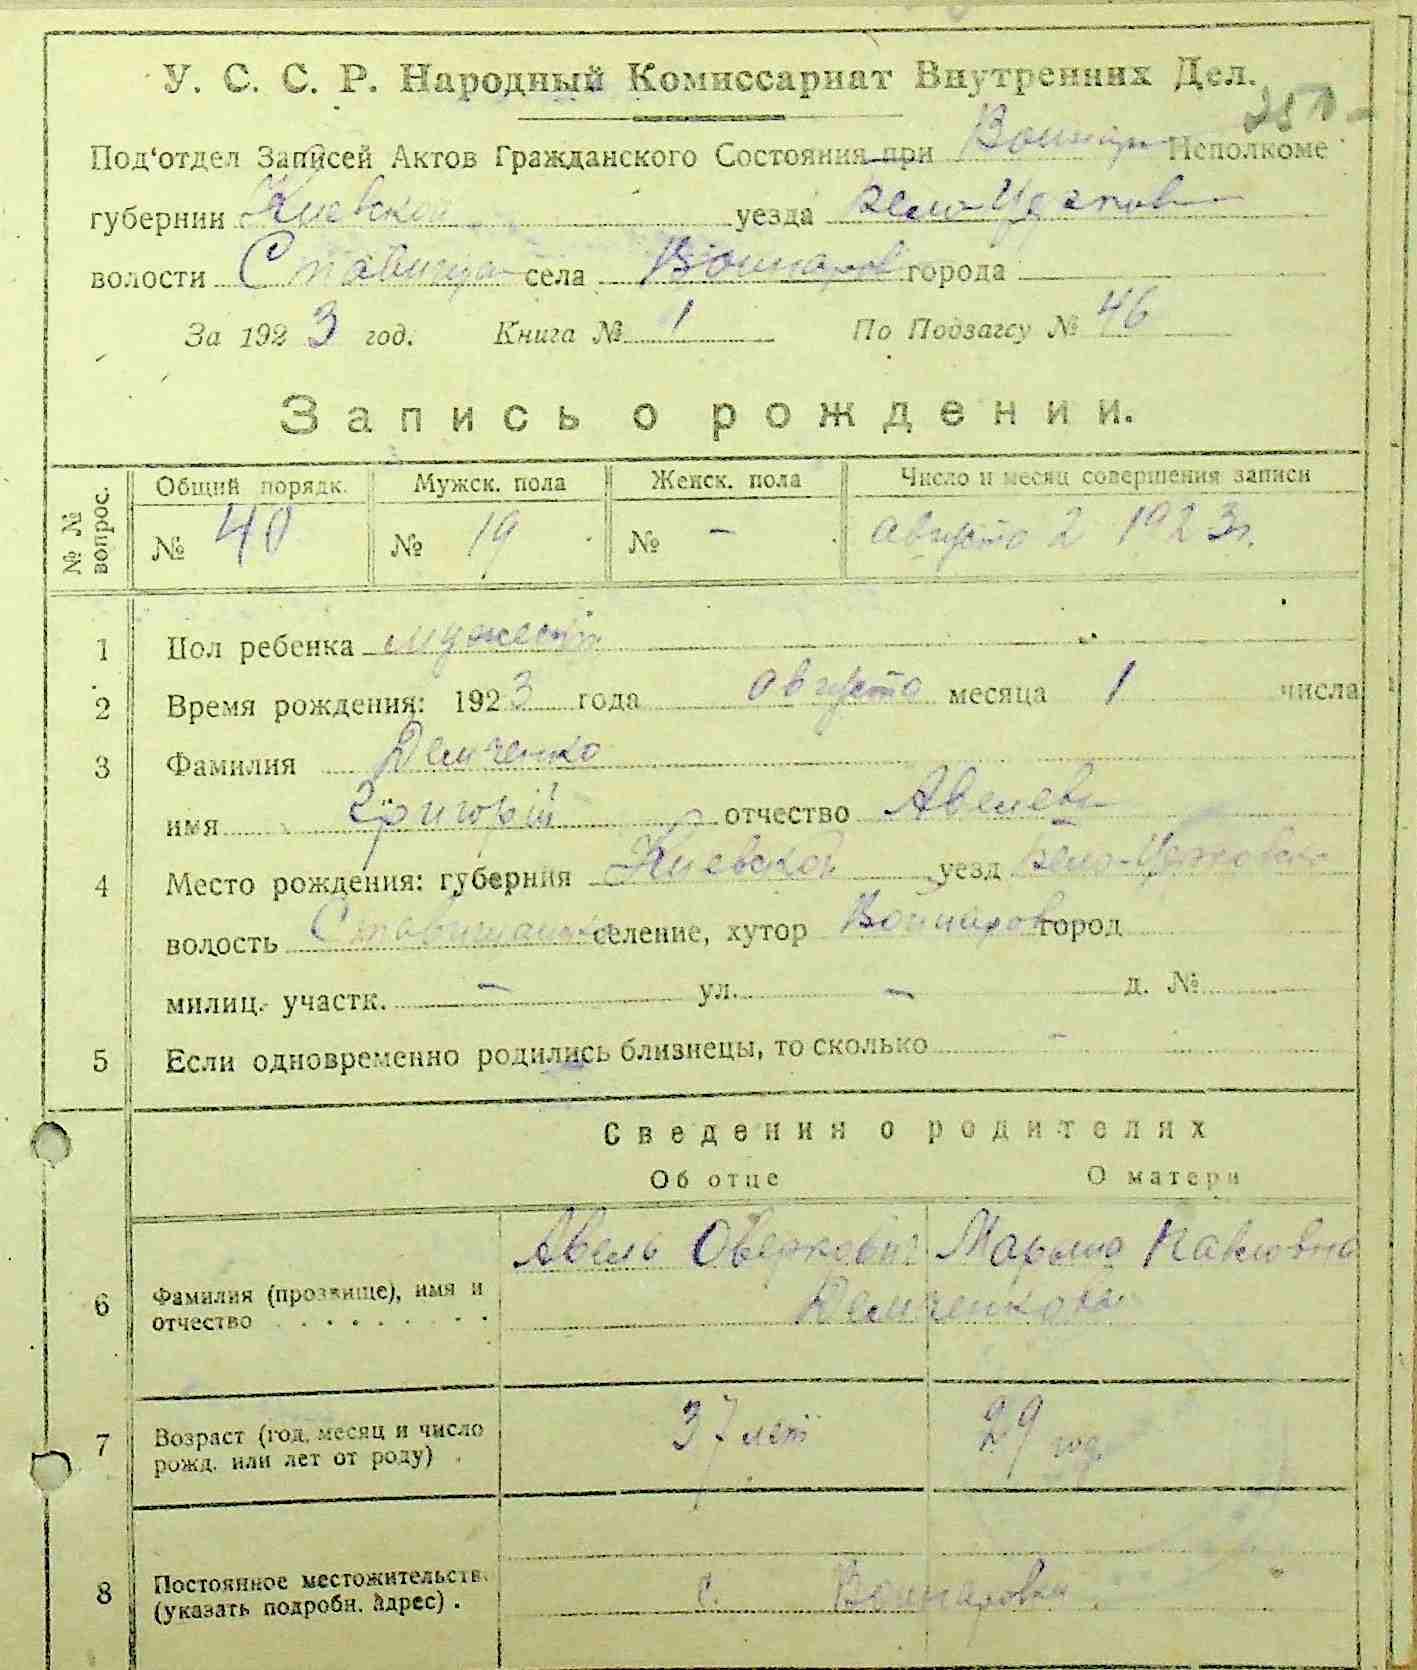 У. С. С. Р. Народный Комиссариат Внутренних Дел.
Под'отдел Записей Актов Гражданского Состояния при Войнар Исполкоме
губернии Киевской уезда Бело-Церков
волости Ставищан села Войнаров города
За 1923 год. Книга № 1 По Подзагсу № 46
Запись о рождении.
№ № вопрос.
Общий порядк. Мужск. пола Женск. пола Число и месяц совершения записи
№ 40 № 19 № - августа 2 1923 г.
1 Пол ребенка мужеский
2 Время рождения: 1923 года августа месяца 1 числа
3 Фамилия Демченко
имя Григорій отчество Авелев
4 Место рождения: губерния Киевской уезд Бело-Церковско
волость Ставищанск селение, хутор Войнаров город
милиц. участк. - ул. - д. №
5 Если одновременно родились близнецы, то сколько -
Сведения о родителях
Об отце О матери
Авель Оверкович Марьяна Павловна
6 Фамилия (прозвище), имя и отчество Демченковы
7 Возраст (год, месяц и число рожд. или лет от роду) . 37 лет 29 год.
8 Постоянное местожительств. (указать подробн. адрес) . с. Войнаровка